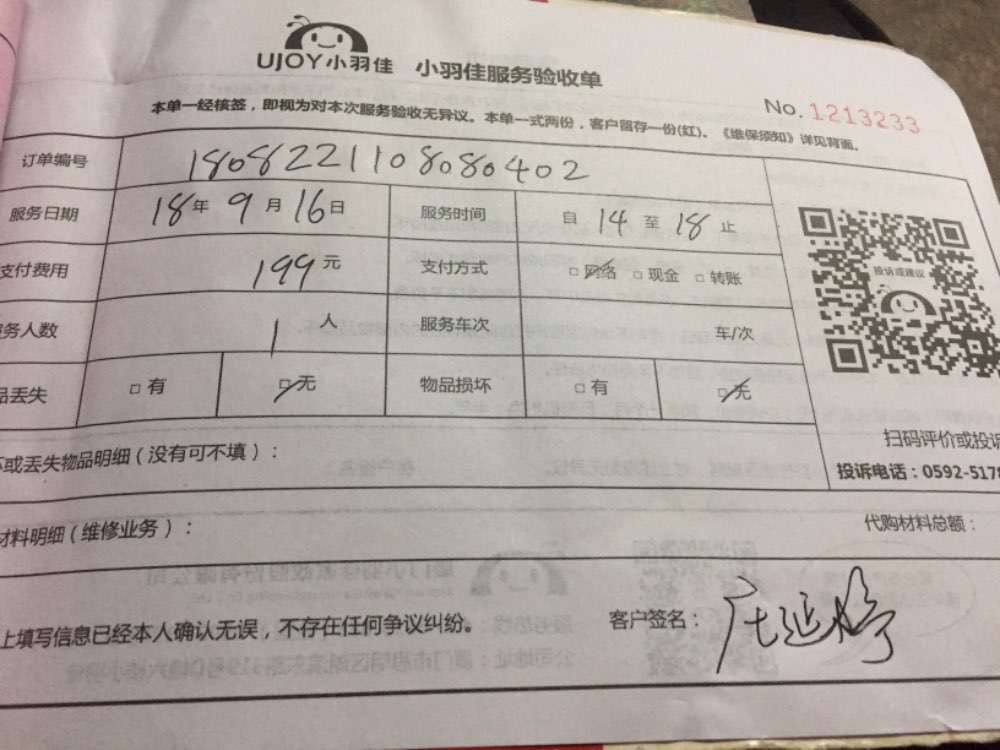 UJOY小羽佳 小羽佳服务验收单
No. 1213233
本单一经核签，即视为对本次服务验收无异议。本单一式两份，客户留存一份(红)。《维保须知》详见背面。
订单编号 1808221108080402
服务日期 18年9月16日 服务时间 自14至18止
支付费用 199元 支付方式 □网络 □现金 □转账
务人数 1人 服务车次 车/次
品丢失 □有 □无 物品损坏 □有 □无
投诉或建议
扫码评价或投诉
投诉电话：0592-5178
坏或丢失物品明细（没有可不填）：
材料明细（维修业务）： 代购材料总额：
上填写信息已经本人确认无误，不存在任何争议纠纷。 客户签名：